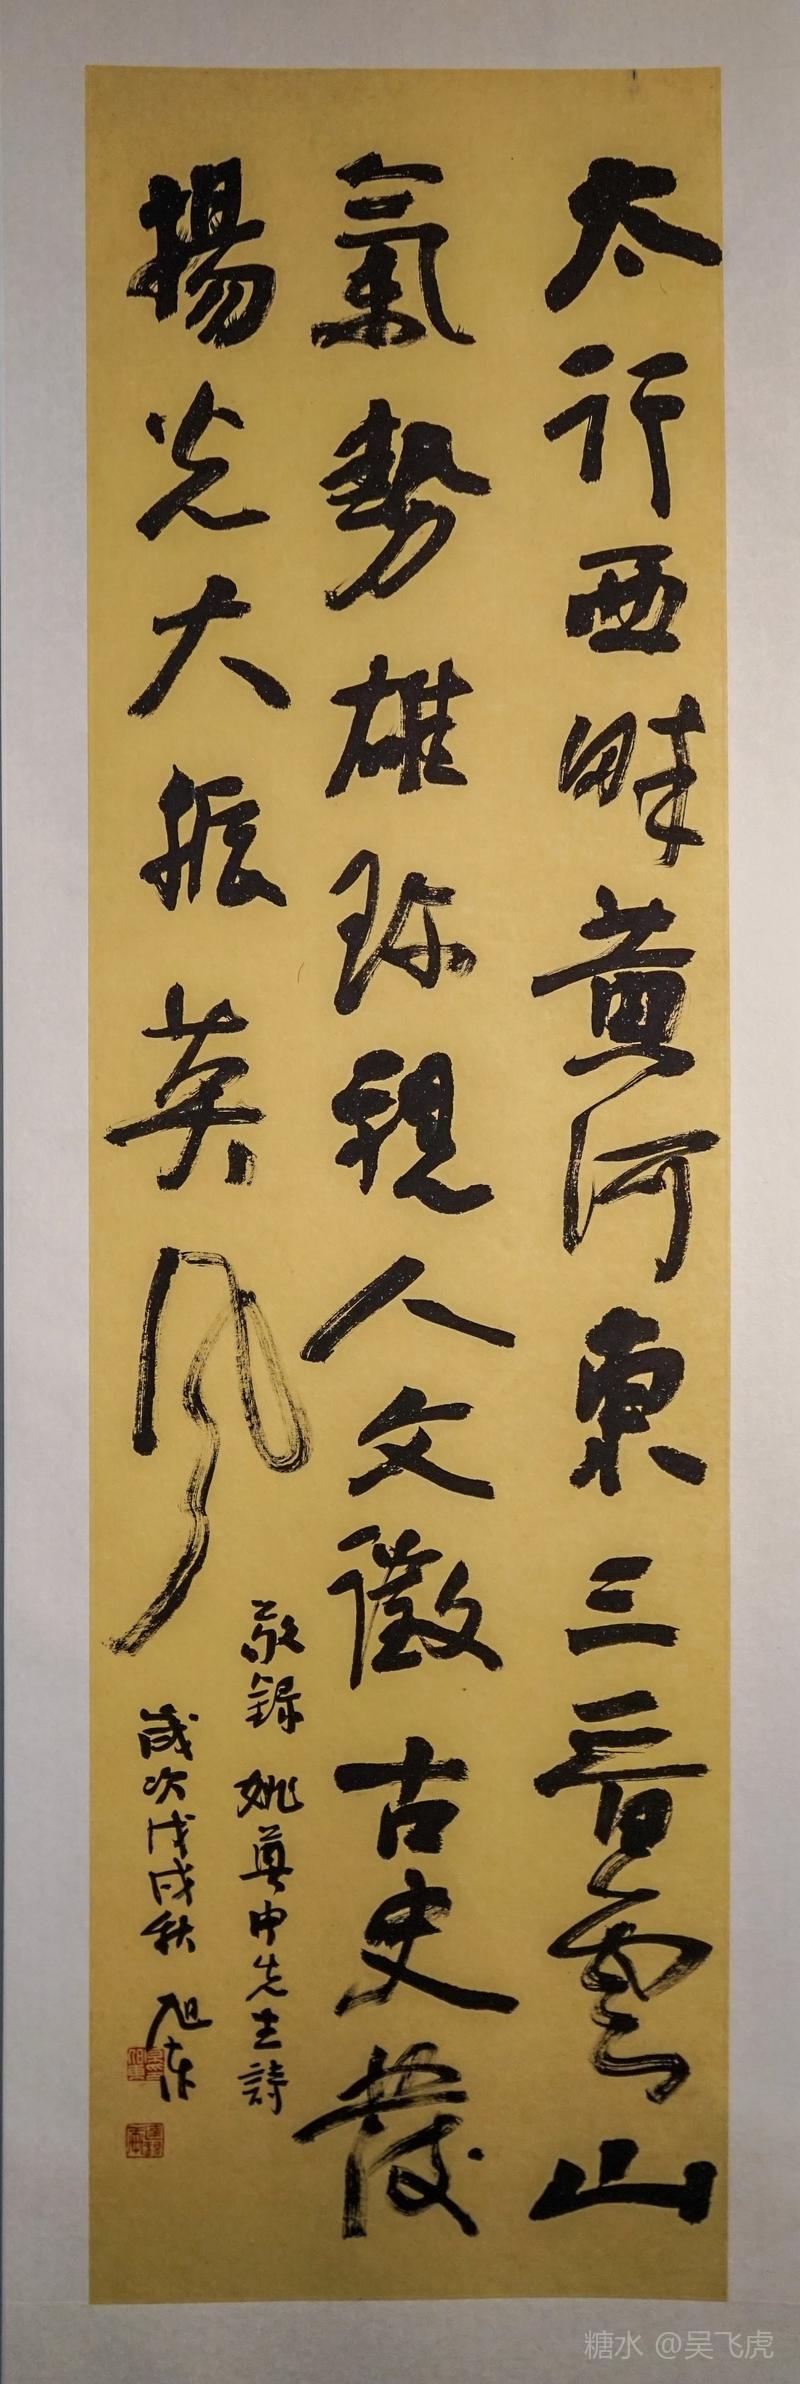 太行西畔黃河東三晉雲山
氣勢雄珎視人文徵古史發
揚光大振英風
敬錄姚奠中先生詩
歲次戊戌秋旭東
糖水 @吴飞虎